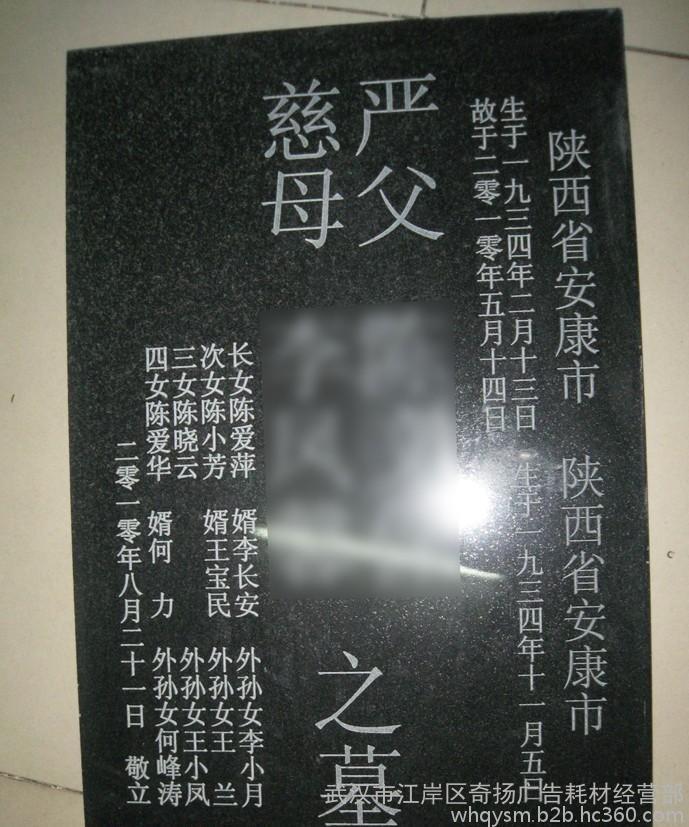 陕西省安康市 陕西省安康市
生于一九三四年二月十三日 生于一九三四年十一月五日
故于二零一零年五月十四日
严父
慈母
之墓
长女陈爱萍 婿李长安 外孙女李小月
次女陈小芳 婿王宝民 外孙女王 兰
三女陈晓云 外孙女王小凤
四女陈爱华 婿何 力 外孙女何峰涛
二零一零年八月二十一日 敬立
武汉市江岸区奇扬广告耗材经营部
whqysm.b2b.hc360.com